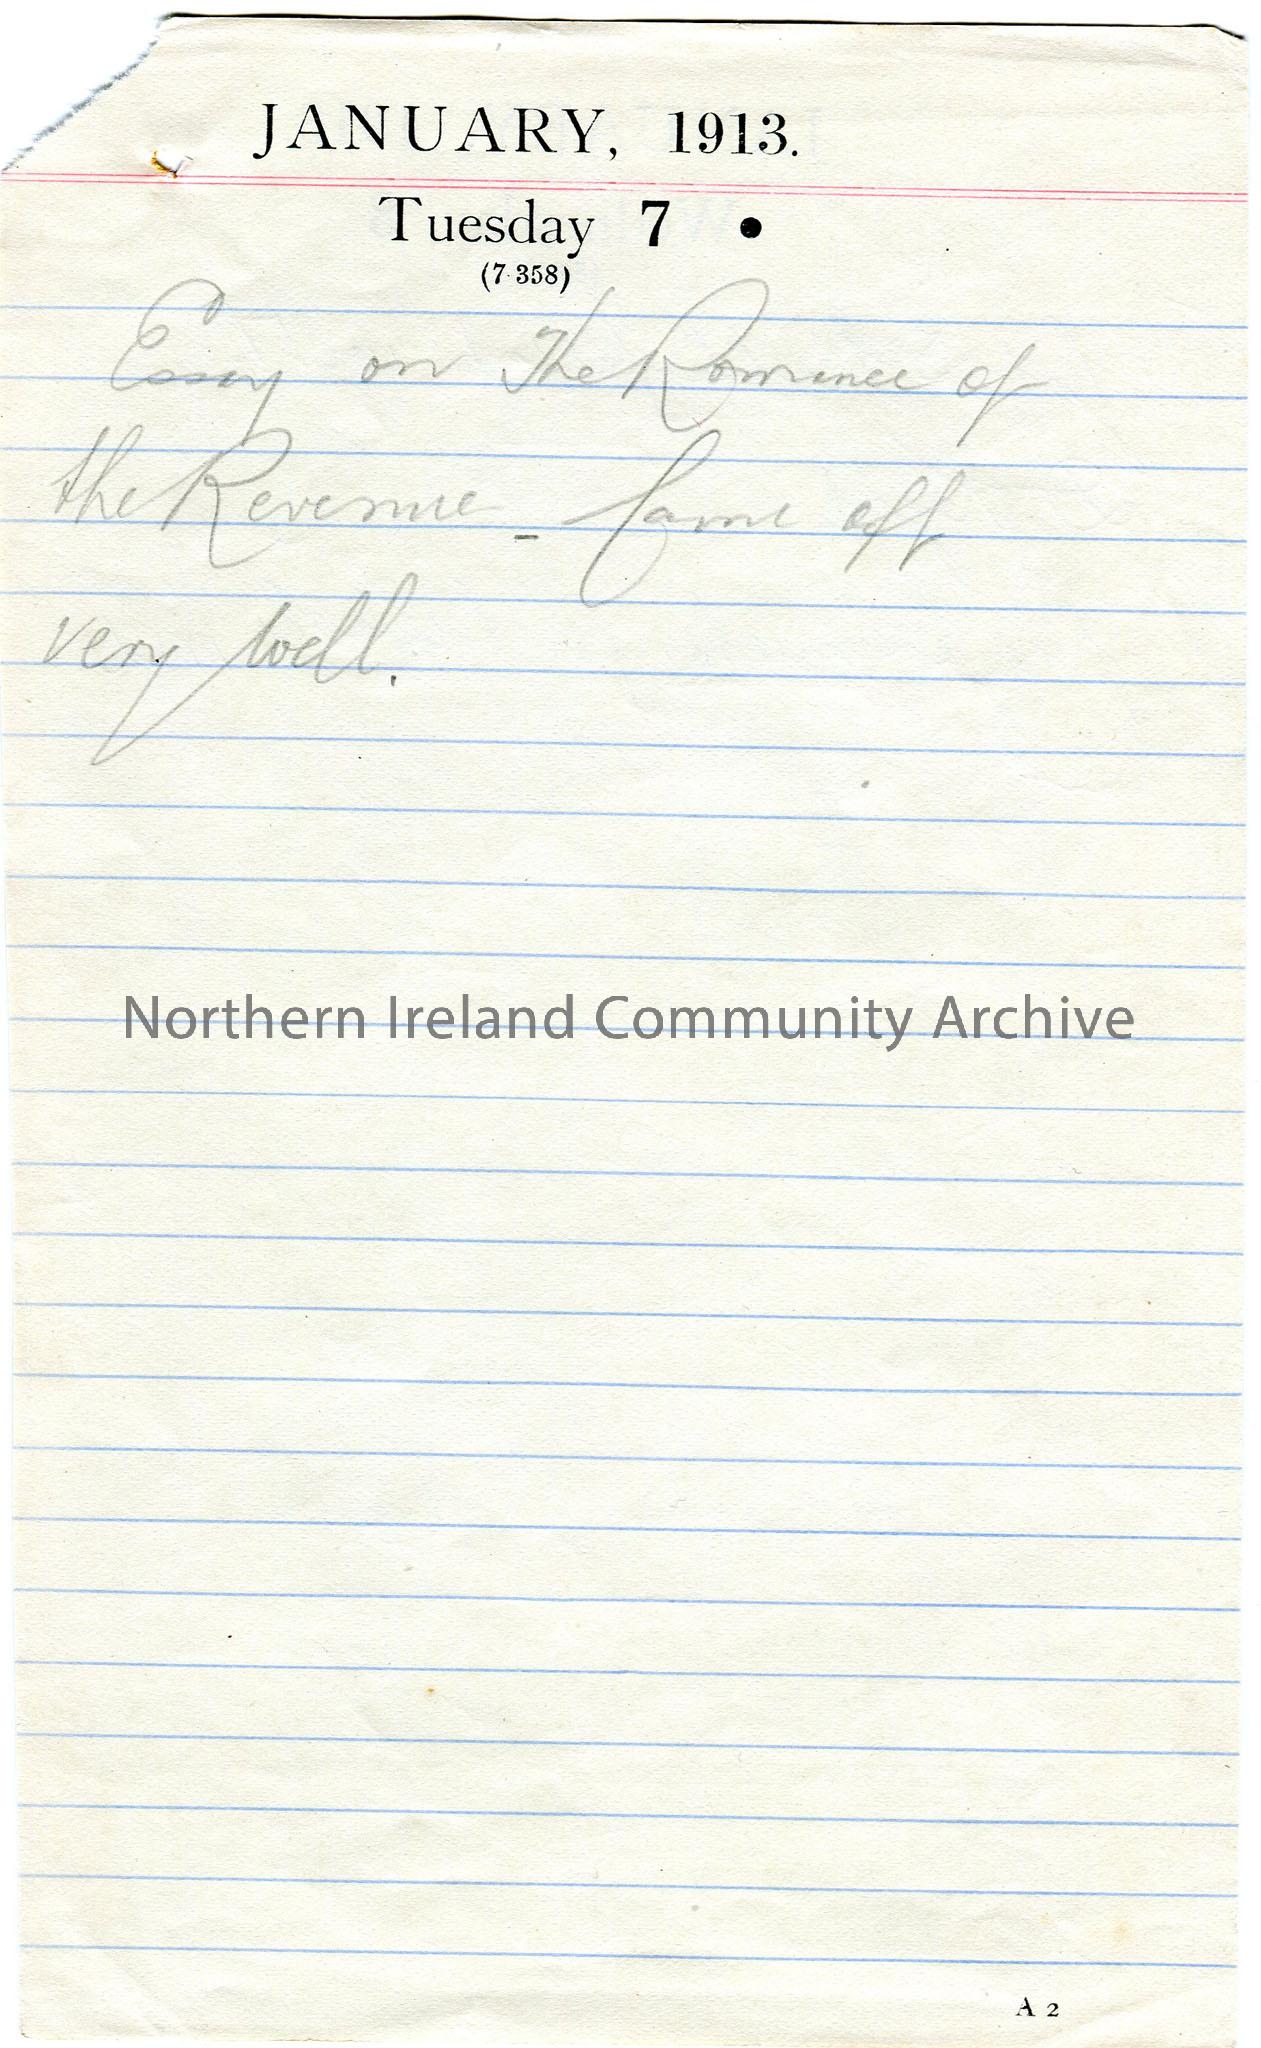 JANUARY, 1913.
Tuesday 7 •
(7-358)
Essay on The Romance of
the Revenue - Came off
very well.
Northern Ireland Community Archive
A 2